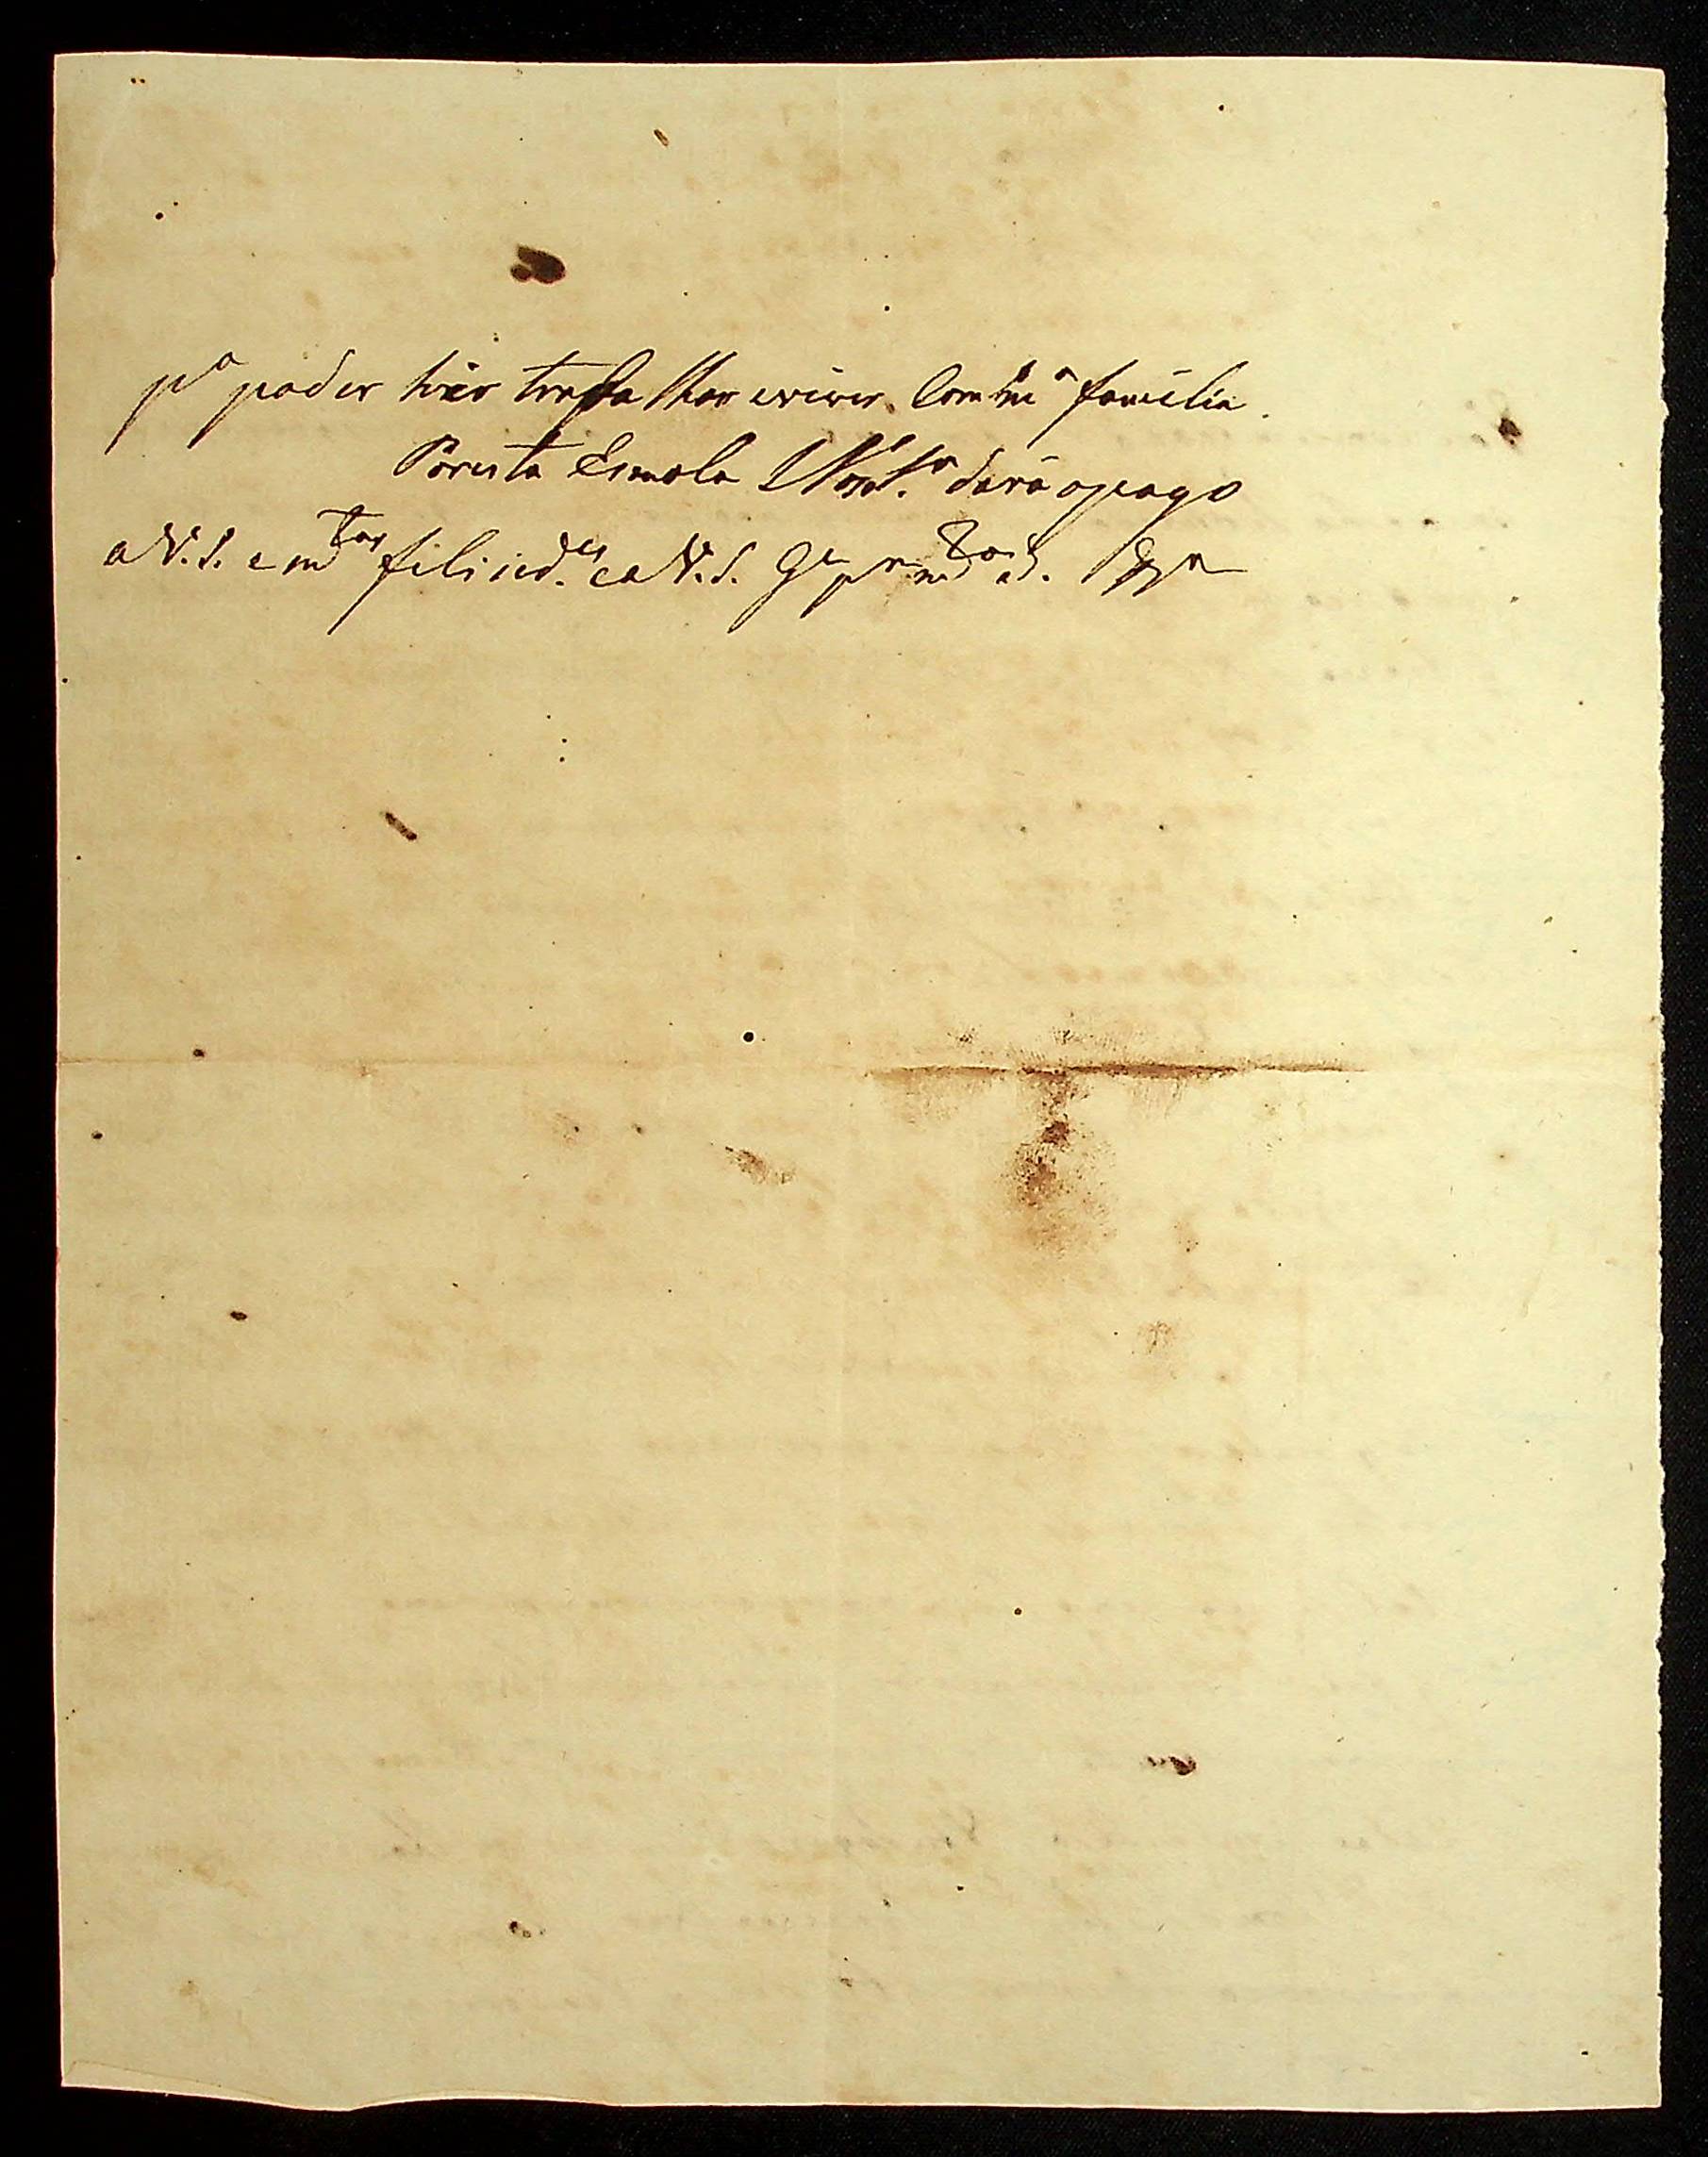 pª poder hir trabalhar eviver. Com mª familia.
Poresta Esmola Nossa Sª dará opago
a V. S. e mtas filicid.es e a V. S. Ge pr md as.